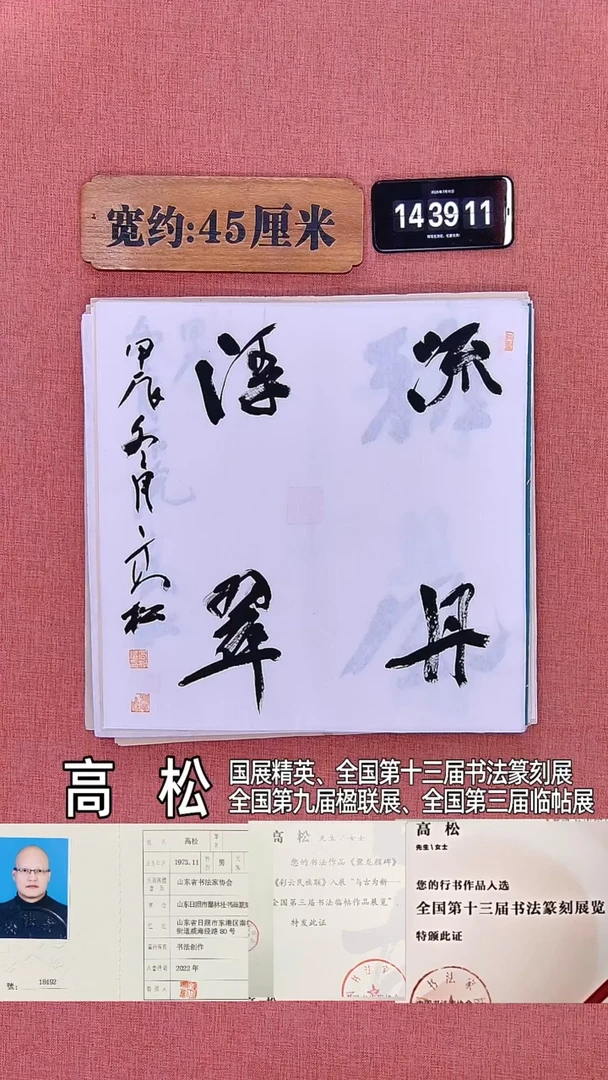 宽约:45厘米
14 39 11
流丹
浮翠
甲辰冬月高松
高 松
国展精英、全国第十三届书法篆刻展
全国第九届楹联展、全国第三届临帖展
高松
1973.11
男
山东省书法家协会
山东省日照市东港区
街道威海径路80号
书法创作
2022年
號: 18692
高 松 先生\女士
您的书法作品
入展“与古为新——
全国第三届书法临帖作品展览”
特发此证
高 松
先生\女士
您的行书作品入选
全国第十三届书法篆刻展览
特颁此证